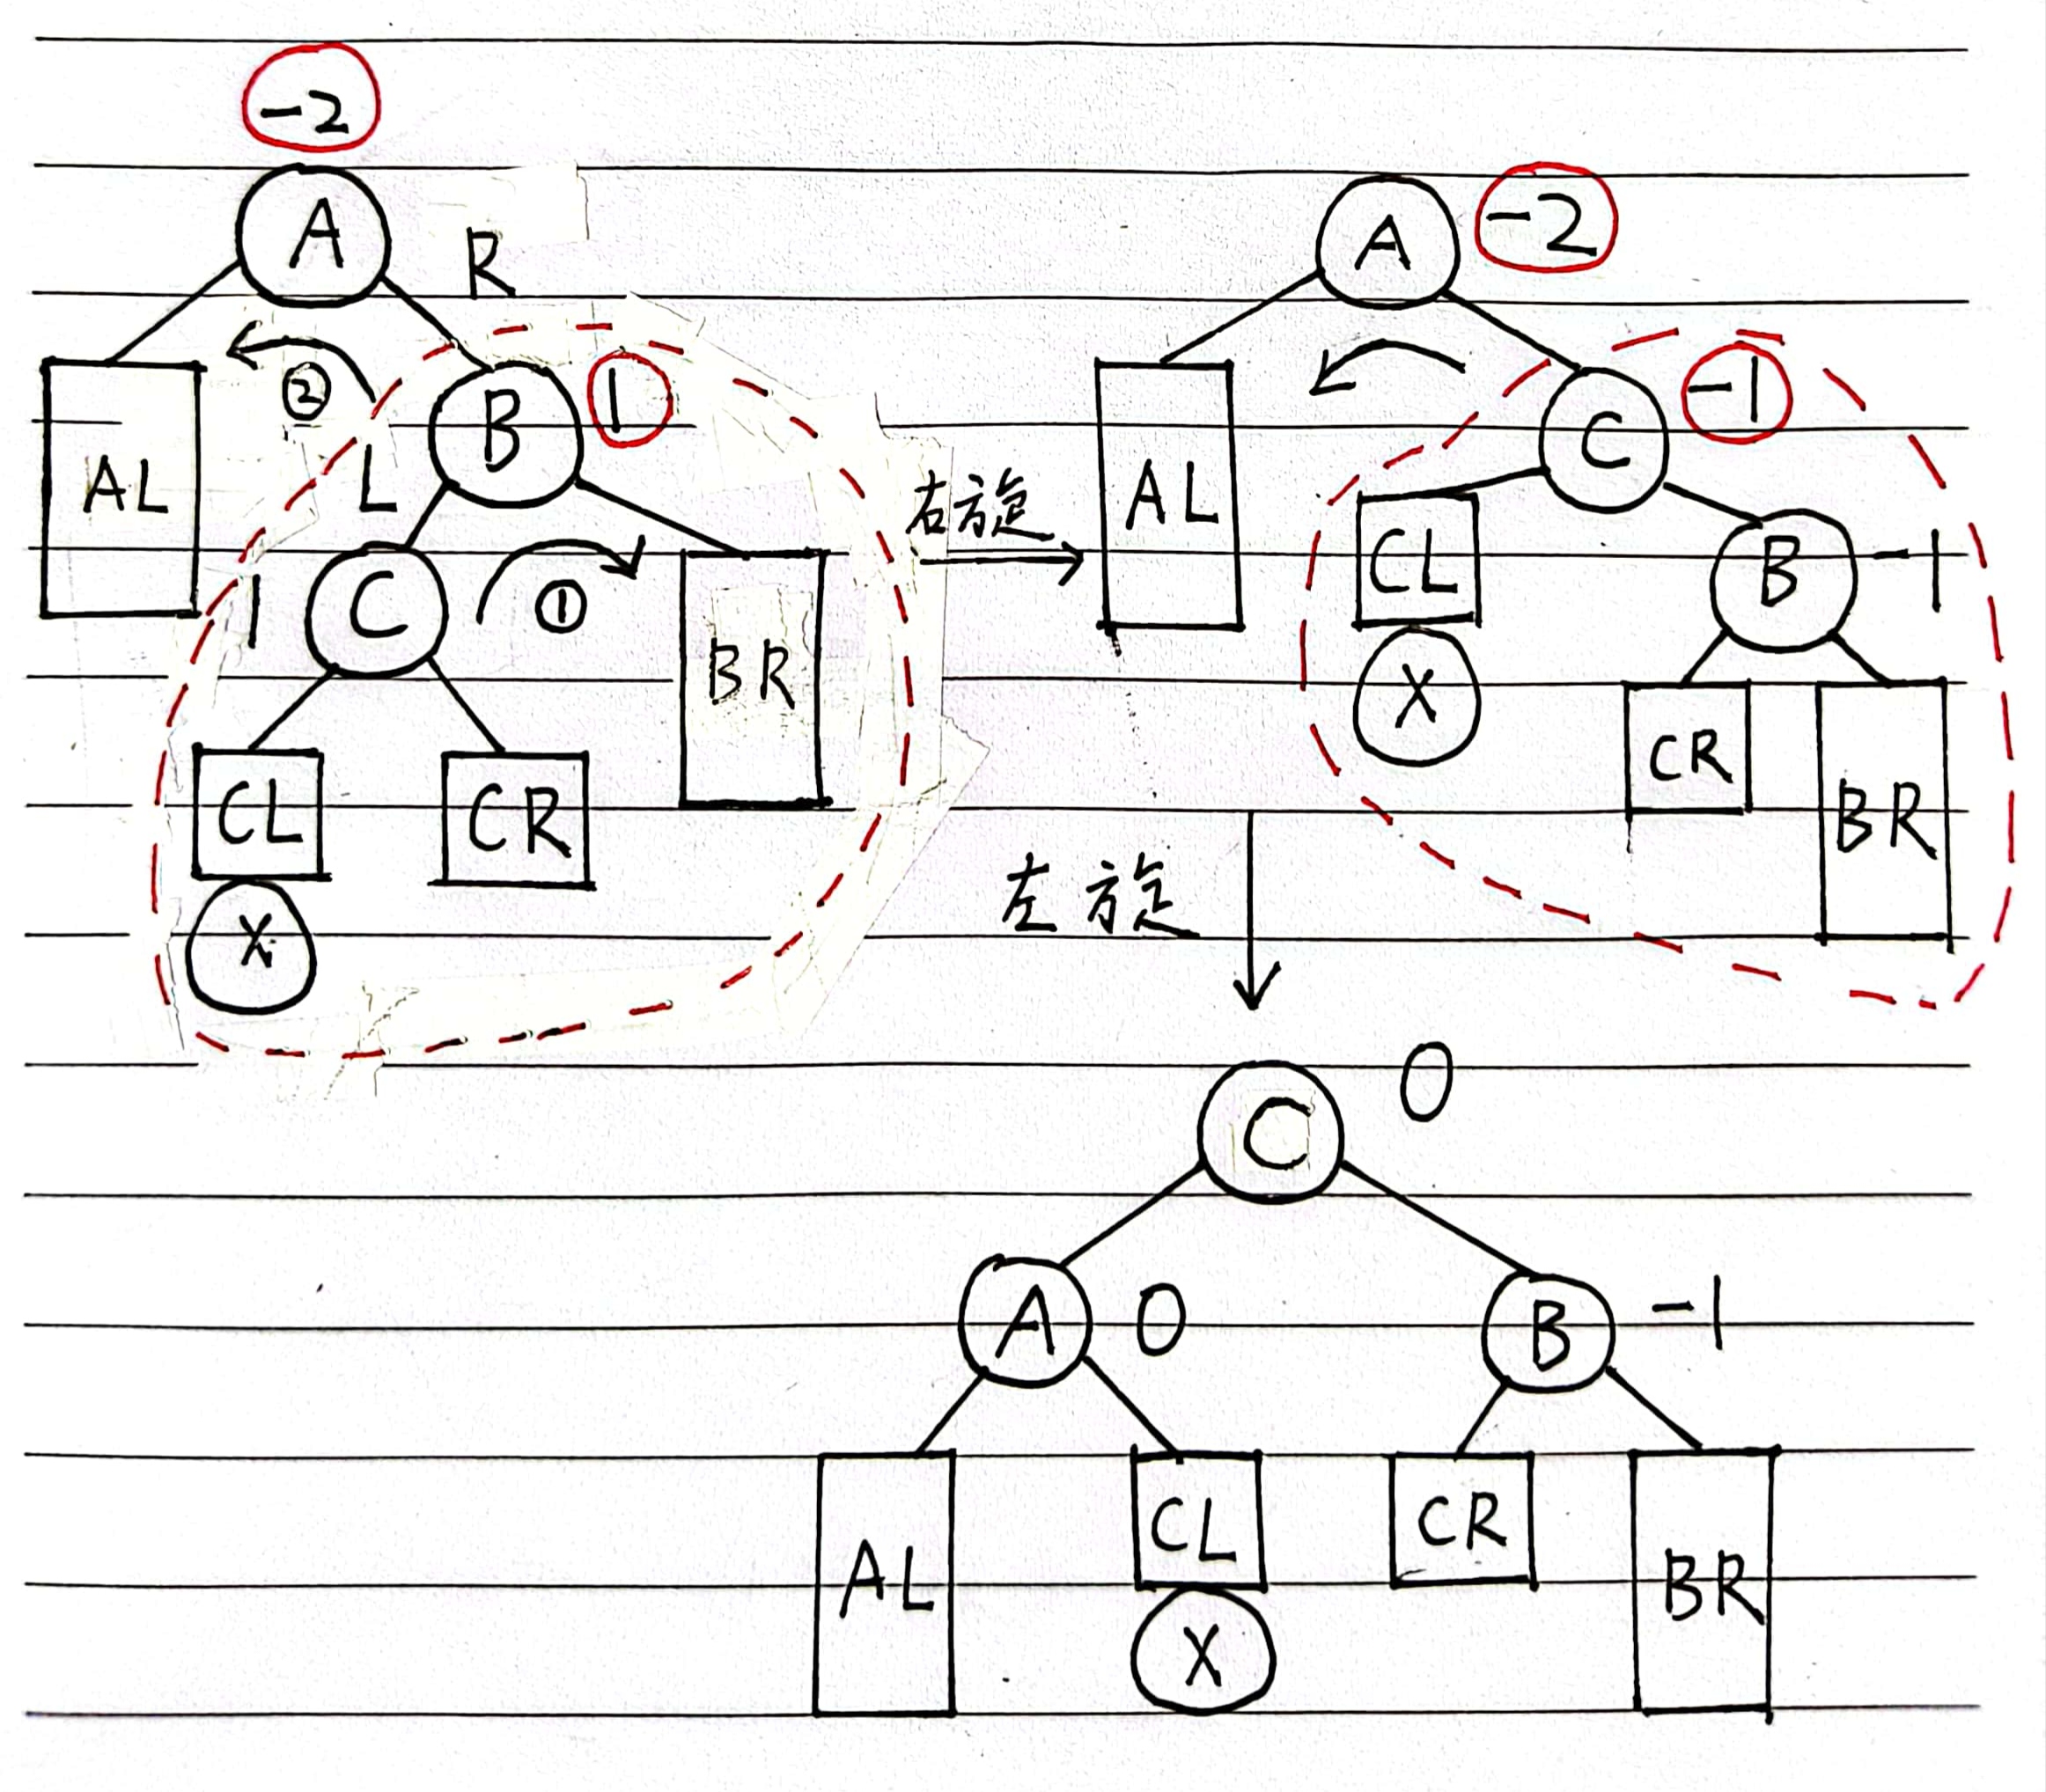 -2
A
R
AL
②
B
1
L
1
C
①
BR
CL
CR
X
右旋
A
-2
AL
C
-1
CL
B
-1
X
CR
BR
左旋
C
0
A
0
B
-1
AL
CL
CR
BR
X